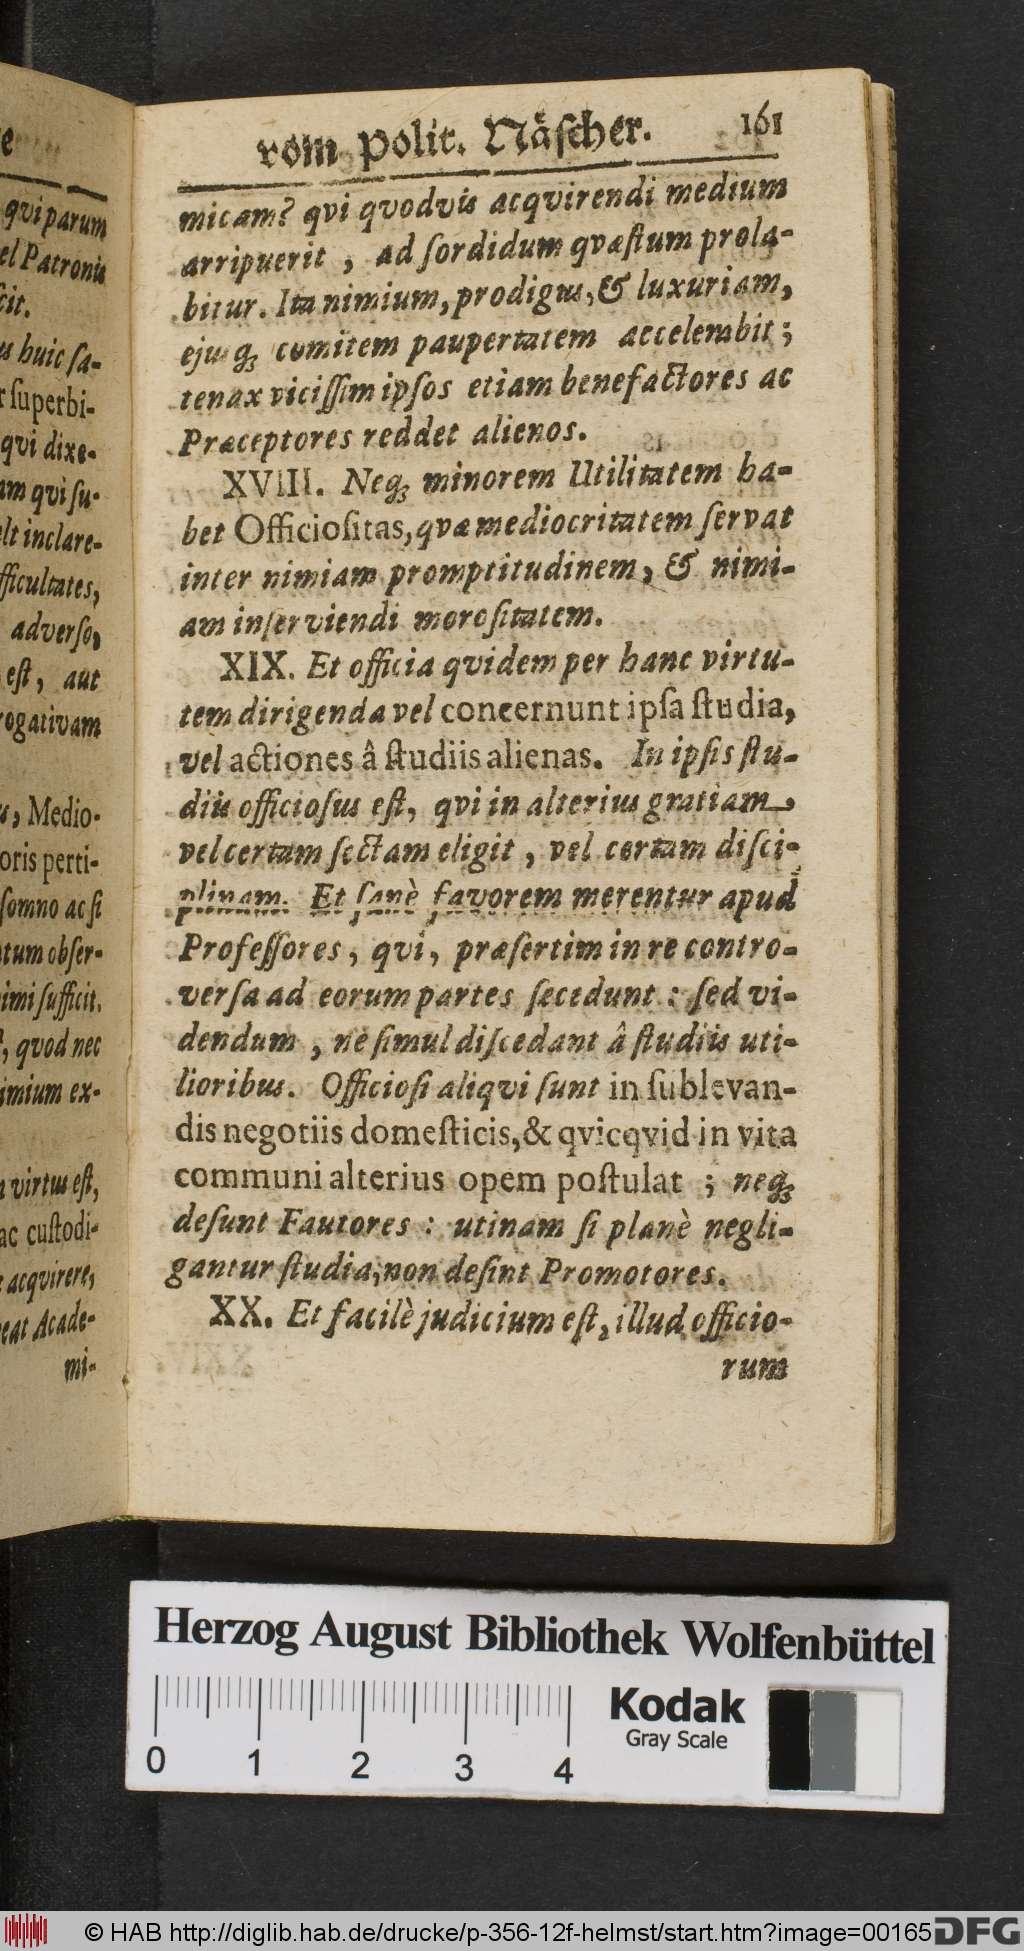 e
qvi parum
el Patronis
cit.
us huic sa-
r superbi-
qvi dixe-
am qvi su-
elt inclare-
fficultates,
adverso,
est, aut
rogativam
u, Medio-
oris perti-
somno ac si
tum obser-
imi sufficit.
, qvod nec
imium ex-
n virtus est,
ac custodi-
acqvirere,
eat Acade-
mi-
vom Polit. Näscher. 161
micam? qvi qvodvis acqvirendi medium
arripuerit, ad sordidum qvæstum prola-
bitur. Ita nimium, prodigus, & luxuriam,
ejusq; comitem paupertatem accelerabit;
tenax vicissim ipsos etiam benefactores ac
Præceptores reddet alienos.
XVIII. Neq; minorem Utilitatem ha-
bet Officiositas, qvæ mediocritatem servat
inter nimiam promptitudinem, & nimi-
am inserviendi morositatem.
XIX. Et officia qvidem per hanc virtu-
tem dirigenda vel concernunt ipsa studia,
vel actiones â studiis alienas. In ipsis stu-
diis officiosus est, qvi in alterius gratiam,
vel certam sectam eligit, vel certam disci-
plinam. Et sanè favorem merentur apud
Professores, qvi, præsertim in re contro-
versa ad eorum partes secedunt: sed vi-
dendum, ne simul discedant â studiis uti-
lioribus. Officiosi aliqvi sunt in sublevan-
dis negotiis domesticis, & qvicqvid in vita
communi alterius opem postulat; neq;
desunt Fautores: utinam si planè negli-
gantur studia, non desint Promotores.
XX. Et facilè judicium est, illud officio-
rum
Herzog August Bibliothek Wolfenbüttel
0 1 2 3 4
Kodak
Gray Scale
© HAB http://diglib.hab.de/drucke/p-356-12f-helmst/start.htm?image=00165
DFG